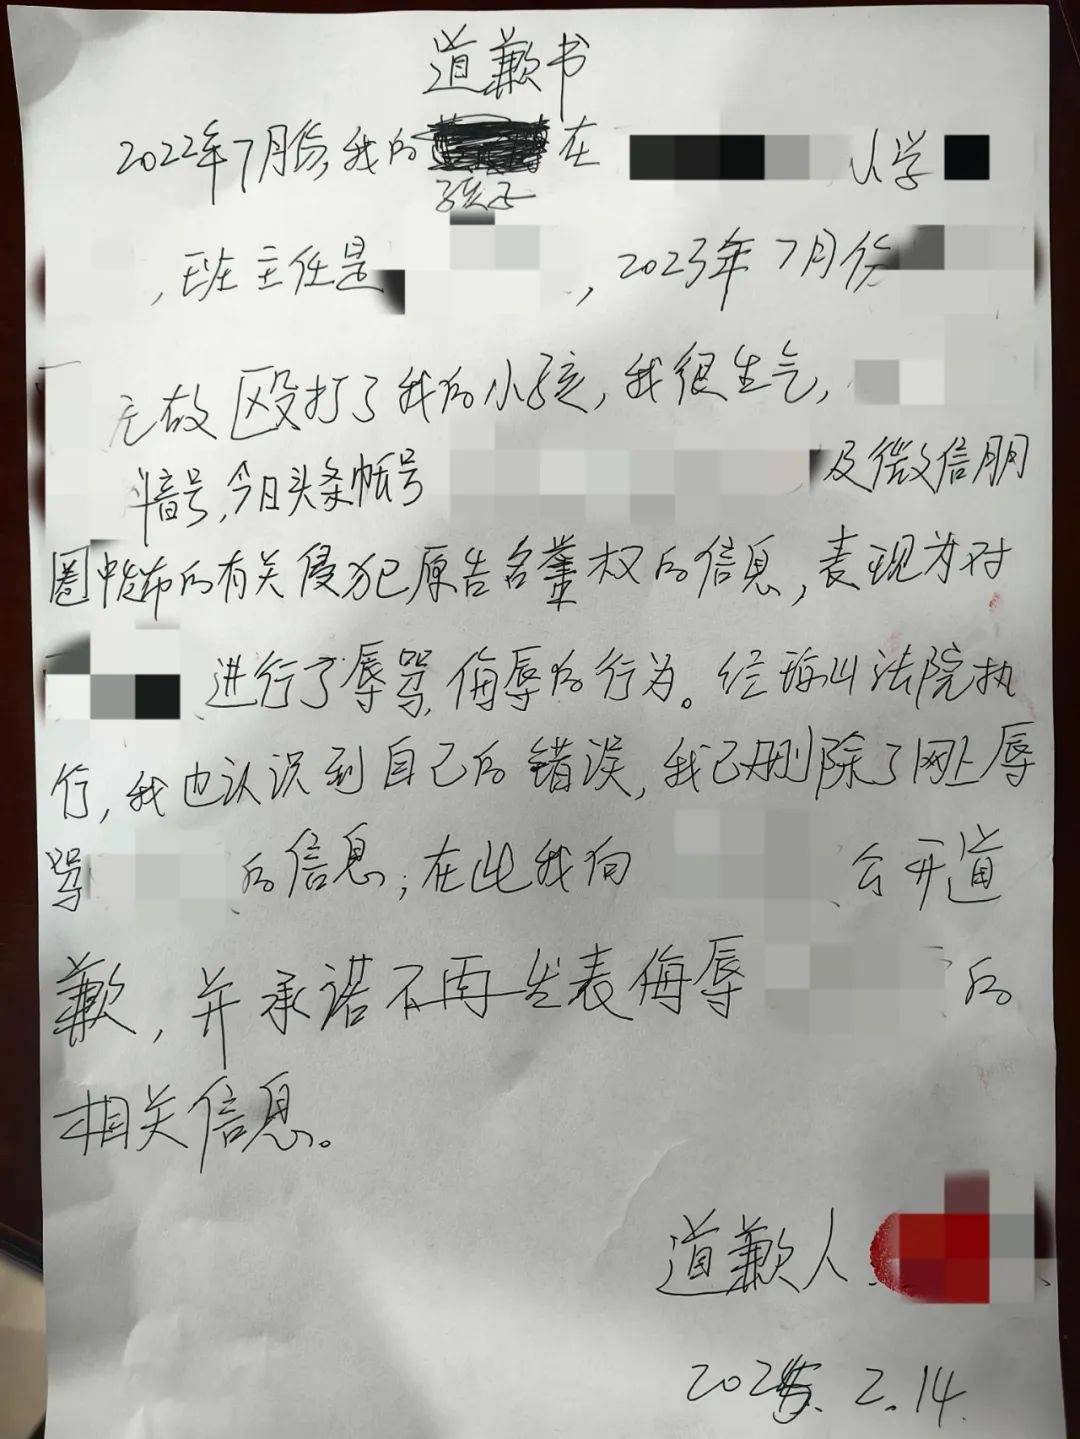 道歉书
2022年7月份,我的 在 小学
孩子
,班主任是 ,2023年7月份
无故殴打了我的小孩,我很生气,
抖音号,今日头条帐号 及微信朋
圈中发布的有关侵犯原告名誉权的信息,表现为对
进行了辱骂,侮辱的行为。经 法院执
行,我也认识到自己的错误,我已删除了网上辱
骂 的信息;在此我向 公开道
歉,并承诺不再发表侮辱 的
相关信息。
道歉人
2025. 2.14